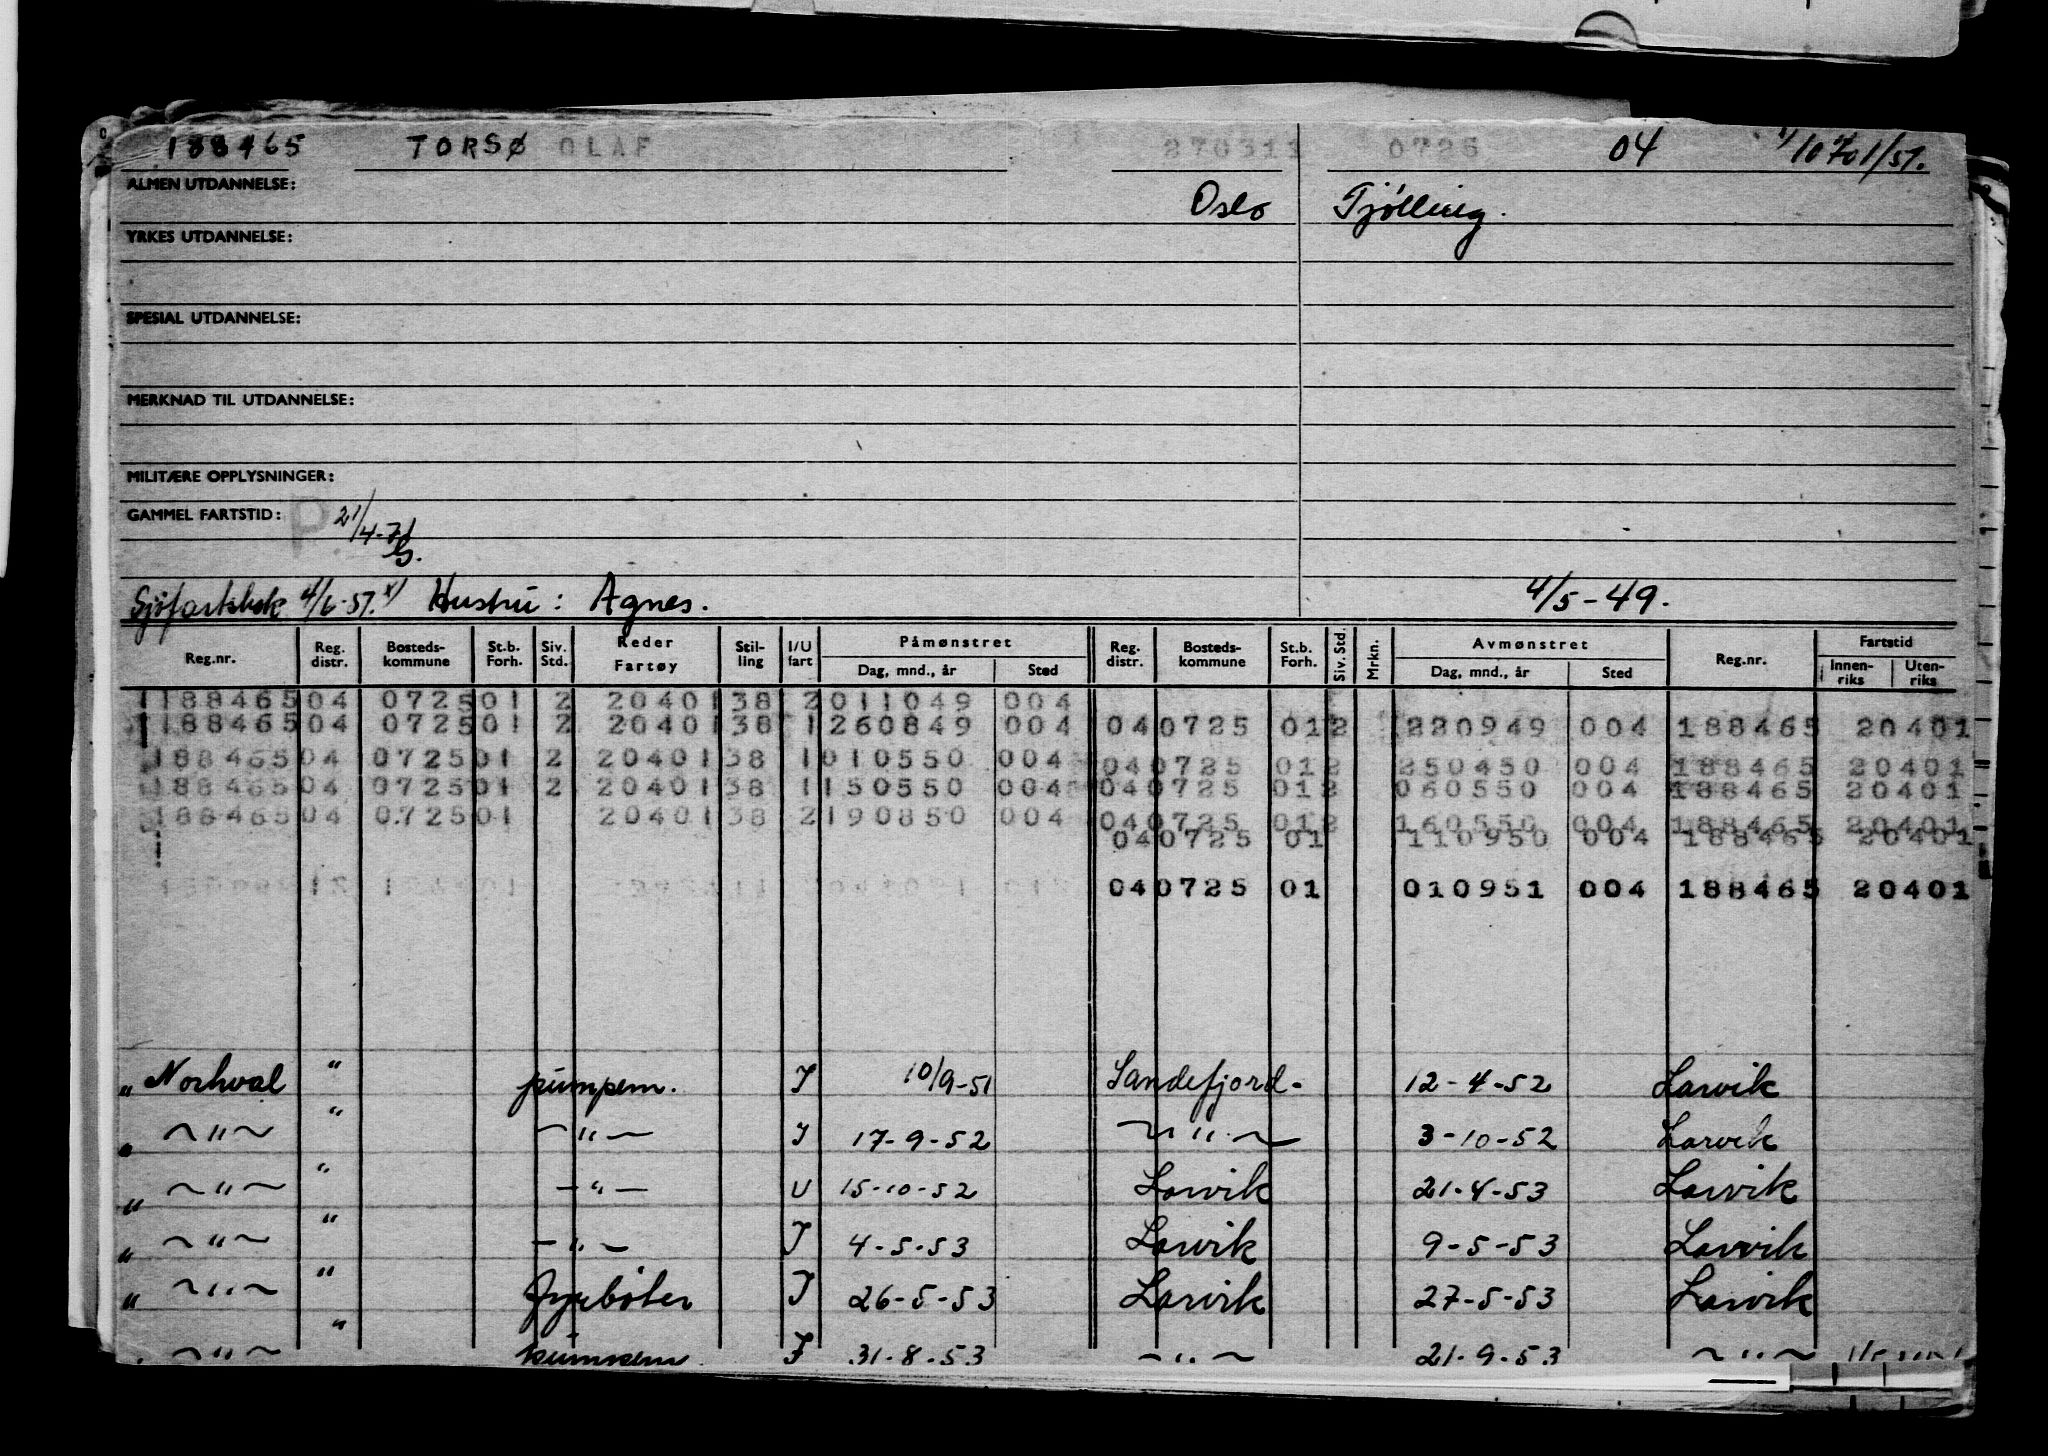 188465 TORSØ OLAF 270311 0725 04
ALMEN UTDANNELSE:
Oslo Tjølling.
YRKES UTDANNELSE:
SPESIAL UTDANNELSE:
MERKNAD TIL UTDANNELSE:
MILITÆRE OPPLYSNINGER:
GAMMEL FARTSTID: P 21/4-71
Sjøfartsbok 4/6-57. Hustru: Agnes. 4/5-49.
Reg.nr. Reg. distr. Bosteds-kommune St.b. Forh. Siv. Std. Reder Fartøy Stil-ling I/U fart Påmønstret Dag, mnd., år Sted Reg. distr. Bosteds-kommune St.b. Forh. Siv. Std. Mrkn. Avmønstret Dag, mnd., år Sted Reg.nr. Fartstid Innen-riks Uten-riks
188465 04 0725 01 2 20401 38 2 011049 004
188465 04 0725 01 2 20401 38 1 260849 004 04 0725 01 2 220949 004 188465 20401
188465 04 0725 01 2 20401 38 1 010550 004 04 0725 01 2 250450 004 188465 20401
188465 04 0725 01 2 20401 38 1 150550 004 04 0725 01 2 060550 004 188465 20401
188465 04 0725 01 20401 38 2 190850 004 04 0725 01 2 160550 004 188465 20401
04 0725 01 110950 004 188465 20401
04 0725 01 010951 004 188465 20401
" Norhval " pumpem. I 10/9-51 Sandefjord- 12-4-52 Larvik
" ~"~ " ~"~ I 17-9-52 ~"~ 3-10-52 Larvik
" ~"~ " -"- U 15-10-52 Larvik 21-4-53 Larvik
" ~"~ " -"- I 4-5-53 Larvik 9-5-53 Larvik
" ~"~ " fyrbøter I 26-5-53 Larvik 27-5-53 Larvik
~"~ " pumpem. I 31-8-53 -"~ 21-9-53 ~"~